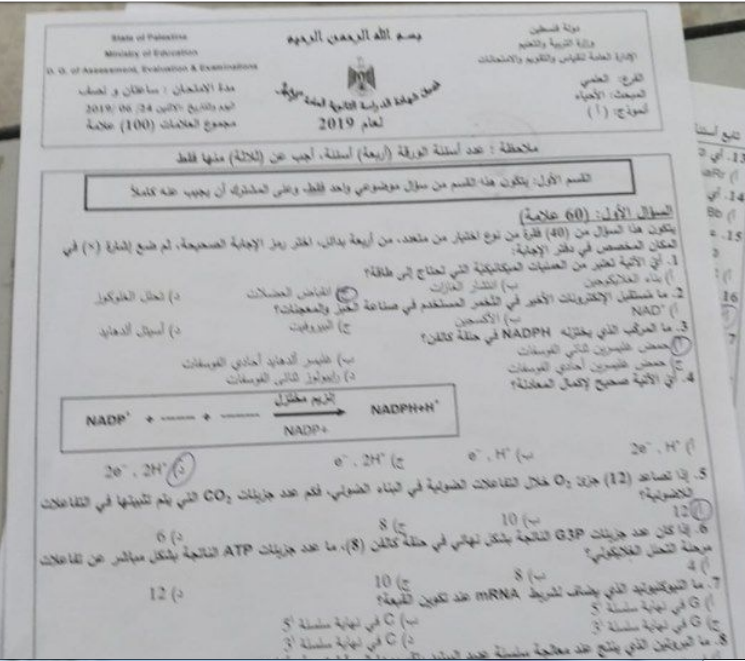 State of Palestine
Ministry of Education
D. G. of Assessment, Evaluation & Examinations
مدة الامتحان : ساعتان و نصف
اليوم والتاريخ: الاثنين 24/ 06 /2019
مجموع العلامات (100) علامة
بسم الله الرحمن الرحيم
لعام 2019
دولة فلسطين
وزارة التربية والتعليم
الإدارة العامة للقياس والتقويم والامتحانات
الفرع: العلمي
المبحث: الأحياء
نموذج: ( أ )
ملاحظة : عدد أسئلة الورقة (أربعة) أسئلة، أجب عن (ثلاثة) منها فقط
القسم الأول: يتكون هذا القسم من سؤال موضوعي واحد فقط، وعلى المشترك أن يجيب عنه كاملاً
السؤال الأول: (60 علامة)
يتكون هذا السؤال من (40) فقرة من نوع اختيار من متعدد، من أربعة بدائل، اختر رمز الإجابة الصحيحة، ثم ضع إشارة (×) في
المكان المخصص في دفتر الإجابة:
1. أي الآتية تعتبر من العمليات الميكانيكية التي تحتاج إلى طاقة؟
أ) بناء الغلايكوجين ب) انتشار الغازات ج) انقباض العضلات د) تحلل الغلوكوز
2. ما مستقبل الإلكترونات الأخير في التخمر المستخدم في صناعة الخبز والمعجنات؟
أ) NAD⁺ ب) الأكسجين ج) البيروفيت د) أسيتل ألدهايد
3. ما المركب الذي يختزله NADPH في حلقة كالفن؟
أ) حمض غليسرين ثنائي الفوسفات ب) غليسر ألدهايد أحادي الفوسفات
ج) حمض غليسرين أحادي الفوسفات د) رايبولوز ثنائي الفوسفات
4. أي الآتية صحيح لإكمال المعادلة؟
NADP⁺ + ------ + ------ إنزيم مختزل NADP+ NADPH+H⁺
أ) 2e⁻ , H⁺ ب) e⁻ , H⁺ ج) e⁻ , 2H⁺ د) 2e⁻ , 2H⁺
5. إذا تصاعد (12) جزئ O₂ خلال التفاعلات الضوئية في البناء الضوئي، فكم عدد جزيئات CO₂ التي يتم تثبيتها في التفاعلات
اللاضوئية؟
أ) 12 ب) 10 ج) 8 د) 6
6. إذا كان عدد جزيئات G3P الناتجة بشكل نهائي في حلقة كالفن (8)، ما عدد جزيئات ATP الناتجة بشكل مباشر عن تفاعلات
مرحلة التحلل الغلايكولي؟
أ) 4 ب) 8 ج) 10 د) 12
7. ما النيوكليوتيد الذي يضاف لشريط mRNA عند تكوين القبعة؟
أ) G في نهاية سلسلة 5' ب) C في نهاية سلسلة 5'
ج) G في نهاية سلسلة 3' د) C في نهاية سلسلة 3'
8. ما البروتين الذي ينتج عند معالجة سلسلة عديد
تابع
13. أي
14. أي
15.
16
7